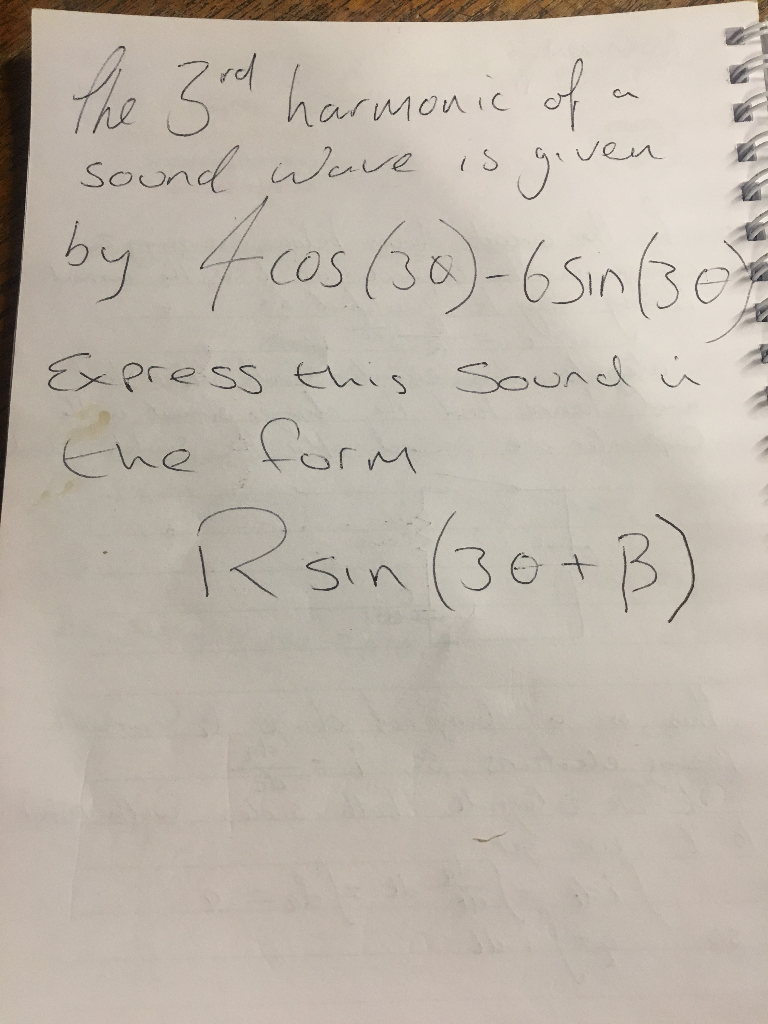 The 3rd harmonic of a
sound wave is given
by 4cos(3θ)-6sin(3θ)
Express this sound in
the form
R sin(3θ+β)